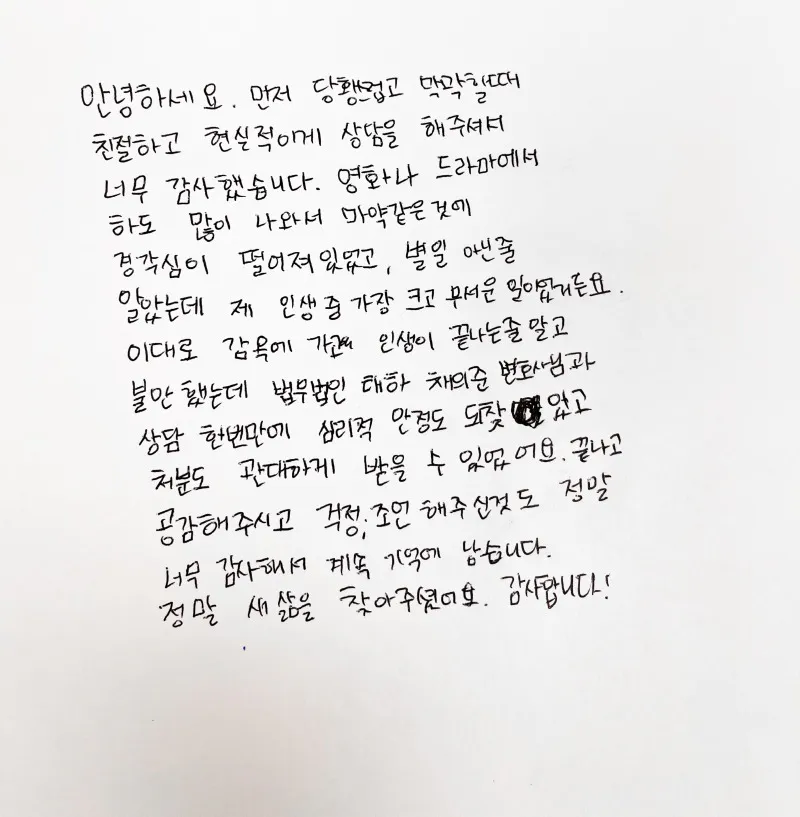 안녕하세요. 먼저 당황스럽고 막막할때
친절하고 현실적이게 상담을 해주셔서
너무 감사했습니다. 영화나 드라마에서
하도 많이 나와서 마약같은것에
경각심이 떨어져있었고, 별일 아닌줄
알았는데 제 인생 중 가장 크고 무서운 일이었거든요.
이대로 감옥에 가고 인생이 끝나는줄 알고
불안 했는데 법무법인 태하 채의준 변호사님과
상담 한번만에 심리적 안정도 되찾았고
처분도 관대하게 받을 수 있었어요. 끝나고
공감해주시고 걱정, 조언 해주신것도 정말
너무 감사해서 계속 기억에 남습니다.
정말 새 삶을 찾아주셨어요. 감사합니다!